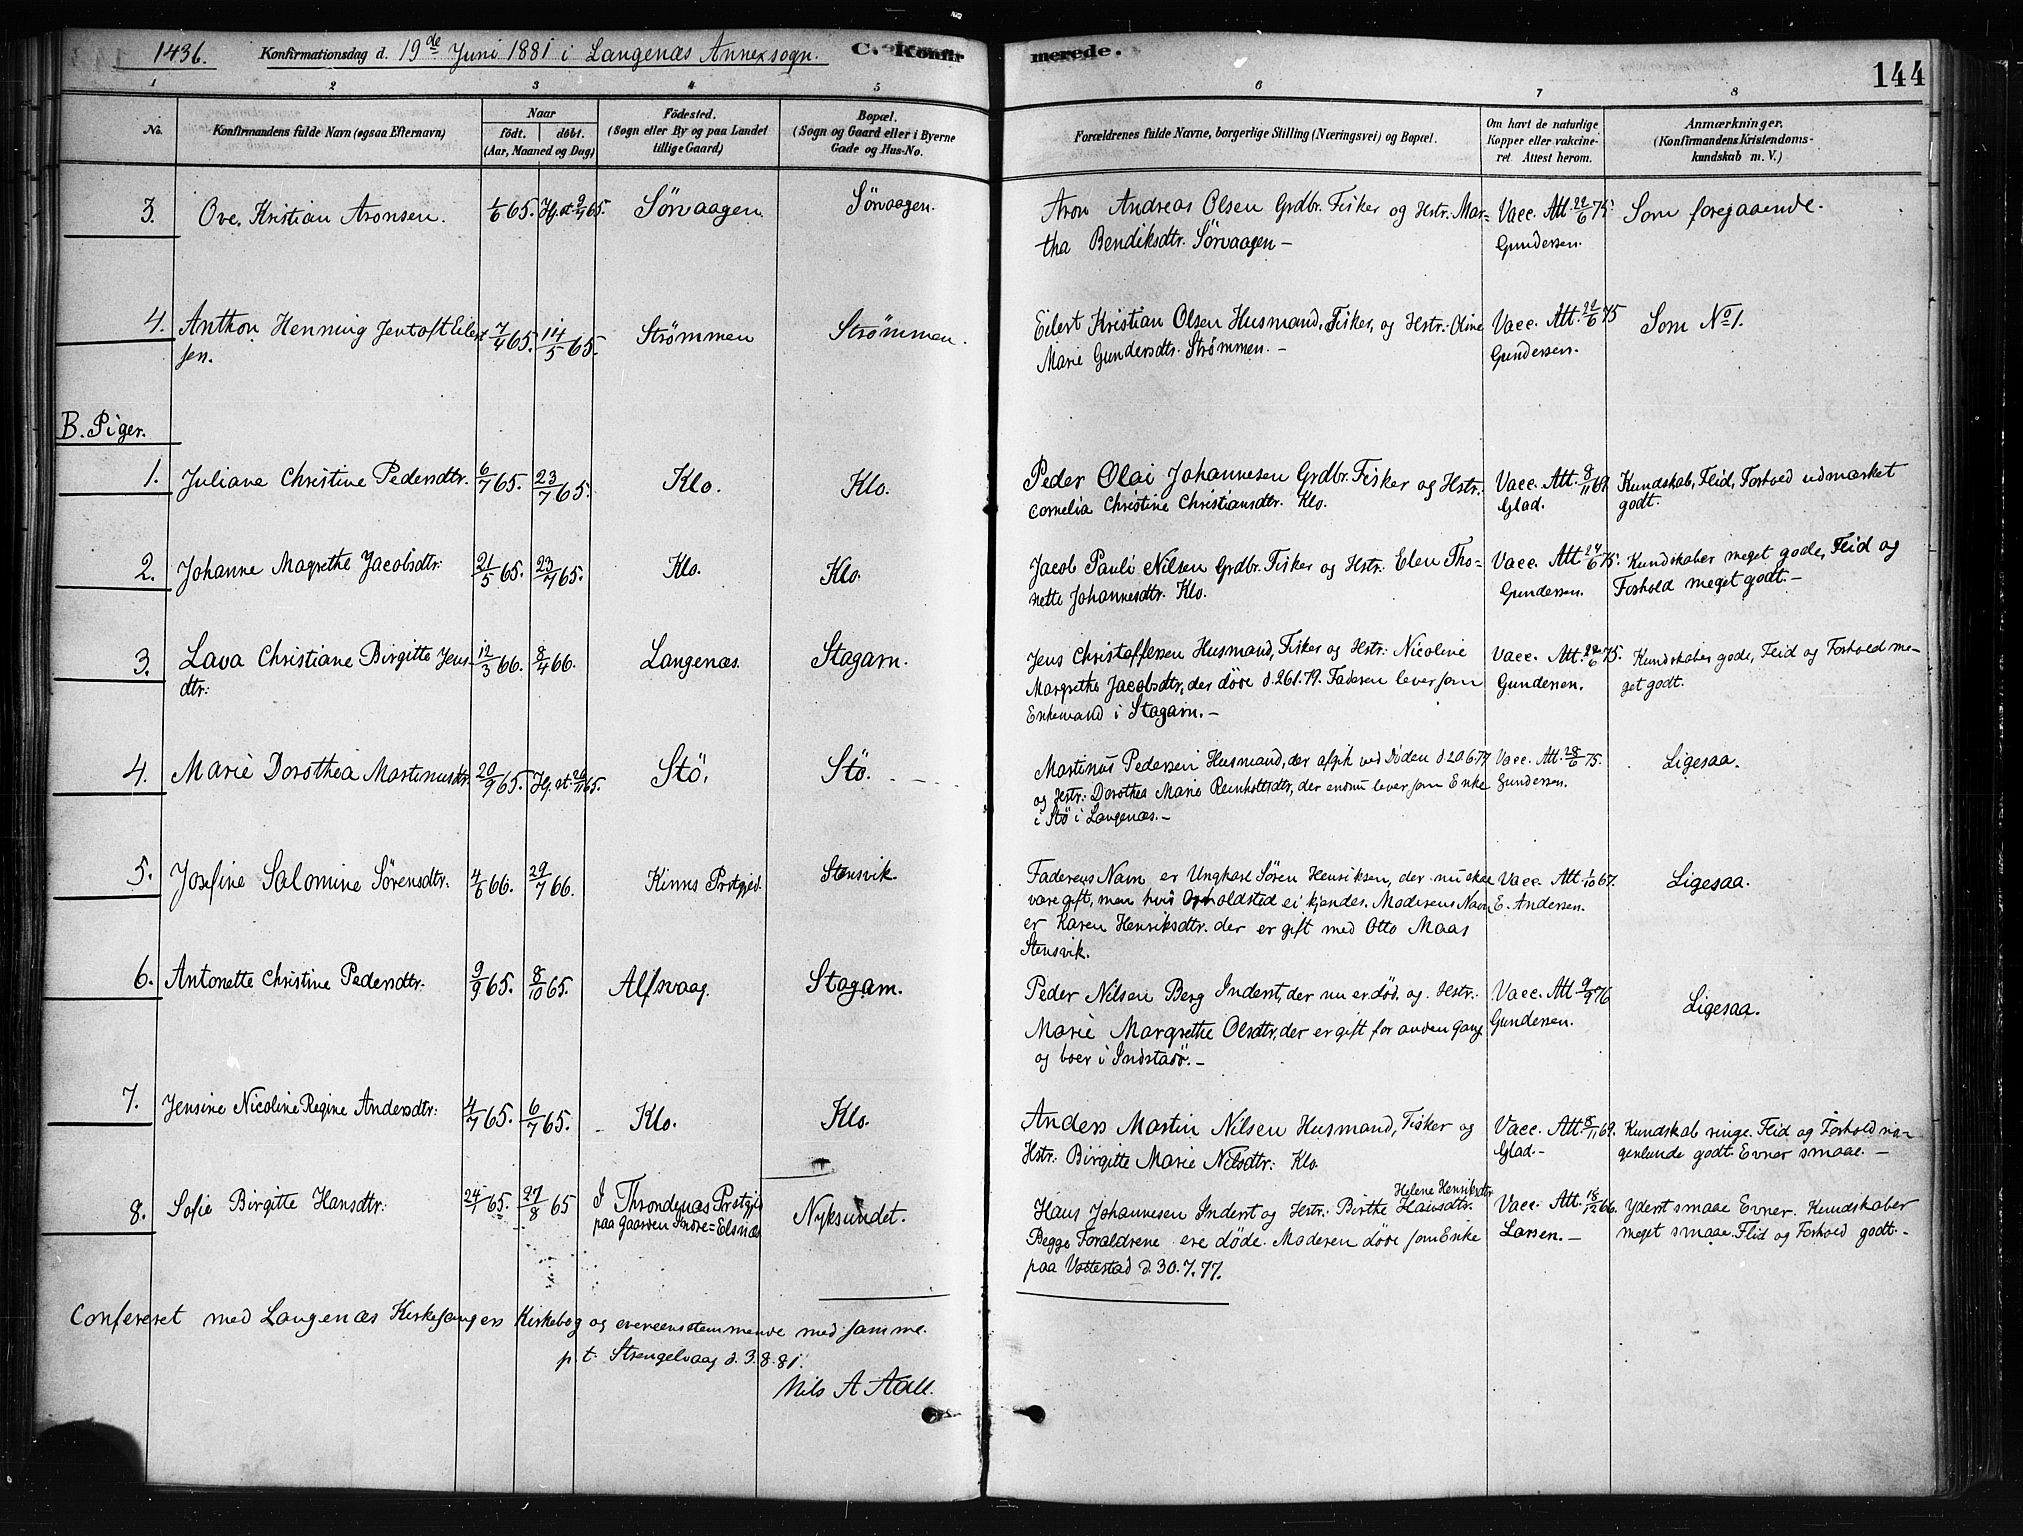 143b. Konfirmationsdag d. 19de Juni 1881 i Langenæs Annexsogn. C. Konfirmerede. 144
1 2 3 4 5 6 7 8
No. Konfirmandens fulde Navn (ogsaa Efternavn) Naar födt. döbt. (Aar, Maaned og Dag) Födested. (Sogn eller By og paa Landet tillige Gaard) Bopæl. (Sogn og Gaard eller i Byerne Gade og Hus-No. Forældrenes fulde Navne, borgerlige Stilling (Næringsvei) og Bopæl. Om havt de naturlige Kopper eller vakcineret. Attest herom. Anmærkninger. (Konfirmandens Kristendomskundskab m. V.)
3. Ove Kristian Aronsen. 1/6 65. Hj. d. 9/7 65. Sörvaagen. Sörvaagen. Aron Andreas Olsen Grdbr. Fisker og Hstr. Mar=
tha Bendiksdtr. Sörvaagen –
Vacc. Att. 22/6 75.
Gundersen.
Som foregaaende.
4. Anthon Henning Jentoft Eilert
sen.
7/4 65. 14/5 65. Strømmen Strømmen.
Eilert Kristian Olsen Husmand, Fisker, og Hstr: Oline
Marie Gundersdtr. Strømmen. –
Vacc. Att. 22/6 75
Gundersen.
Som No 1.
B. Piger.
1. Juliane Christine Pedersdtr. 6/7 65. 23/7 65. Klo. Klo.
Peder Olai Johannesen Grdbr. Fisker og Hstr.
Cornelia Christine Christiansdtr. Klo.
Vacc. Att. 8/11 69.
Glad.
Kundskab, Flid, Forhold udmærket
godt.
2. Johanne Magrethe Jacobsdtr: 21/5 65. 23/7 65. Klo. Klo.
Jacob Pauli Nilsen Grdbr. Fisker og Hstr: Elen Tho=
nette Johannesdtr. Klo.
Vacc. Att 24/6 75.
Gundersen.
Kundskaber meget gode, Flid og
Forhold meget godt. –
3. Lava Christiane Birgitte Jens-
dtr:
12/3 66. 8/4 66. Langenæs. Stagarn.
Jens Christoffersen Husmand, Fisker og Hstr: Nicoline
Margrethe Jacobsdtr, der døde d. 26.1.79. Faderen lever som
Enkemand i Stagarn. –
Vacc. Att. 22/6 75.
Gundersen.
Kundskaber gode, Flid og Forhold me-
get godt.
4. Marie Dorothea Martinusdtr. 20/9 65. Hj. d. 20/11 65. Stö. Stö.
Martinus Pedersen Husmand, der afgik ved Döden d 20.6.79
og Hstr: Dorothea Marie Reinholtsdtr, der endnu lever som Enke
i Stö i Langenæs. –
Vacc. Att. 28/6 75.
Gundersen.
Ligesaa.
5. Josefine Salomine Sörensdtr. 4/6 66. 29/7 66. Kinns Prstgjd. Stensvik.
Faderens Navn er Ungkarl Sören Henriksen, der nu skal
være gift, men hvis Opholdsted ei kjendes. Moderens Navn
er Karen Henriksdtr. der er gift med Otto Maas
Stensvik.
Vacc. Att. 1/10 67.
E. Andersen.
Ligesaa.
6. Antonette Christine Pedersdtr. 9/9 65. 8/10 65. Alfsvaag. Stagarn.
Peder Nilsen Berg Inderst, der nu er död. og Hstr.:
Marie Margrethe Olsdtr, der er gift for anden Gang
og boer i Indstadö. –
Vacc. Att 9/9 76
Gundersen.
Ligesaa.
7. Jensine Nicoline Regine Andersdtr: 4/7 65. 6/7 65. Klo. Klo.
Anders Martin Nilsen Husmand, Fisker og
Hstr: Birgitte Marie Nilsdtr: Klo.
Vacc. Att. 8/11 69.
Glad. –
Kundskab ringe. Flid og Forhold no-
genlunde godt. Evner smaae. –
8. Sofie Birgitte Hansdtr: 24/7 65. 27/8 65 I Throndenæs Prstgjd
paa Gaarden Indre=Elsnæs
Nyksundet.
Helene Henriksdtr
Hans Johannesen Inderst og Hstr: Birthe Hansdtr.
Begge Forældrene ere döde. Moderen döde som Enke
paa Vottestad d. 30.7.77.
Vacc. Att. 18/12 66.
Larsen. –
Yderst smaae Evner. Kundskaber
meget smaae. Flid og Forhold godt. –
Confereret med Langenæs Kirkesangers Kirkebog og overeensstemmende med samme.
p. t. Strengelvaag d. 3.8.81.
Nils A Aall.